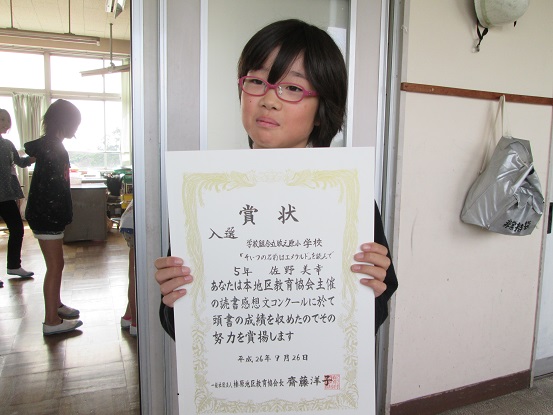 賞状
入選
学校組合立牧之原小学校
「そいつの名前はエメラルド」を読んで
5年 佐野美幸
あなたは本地区教育協会主催
の読書感想文コンクールに於て
頭書の成績を収めたのでその
努力を賞揚します
平成26年9月26日
一般社団法人榛原地区教育協会長 齋藤洋子